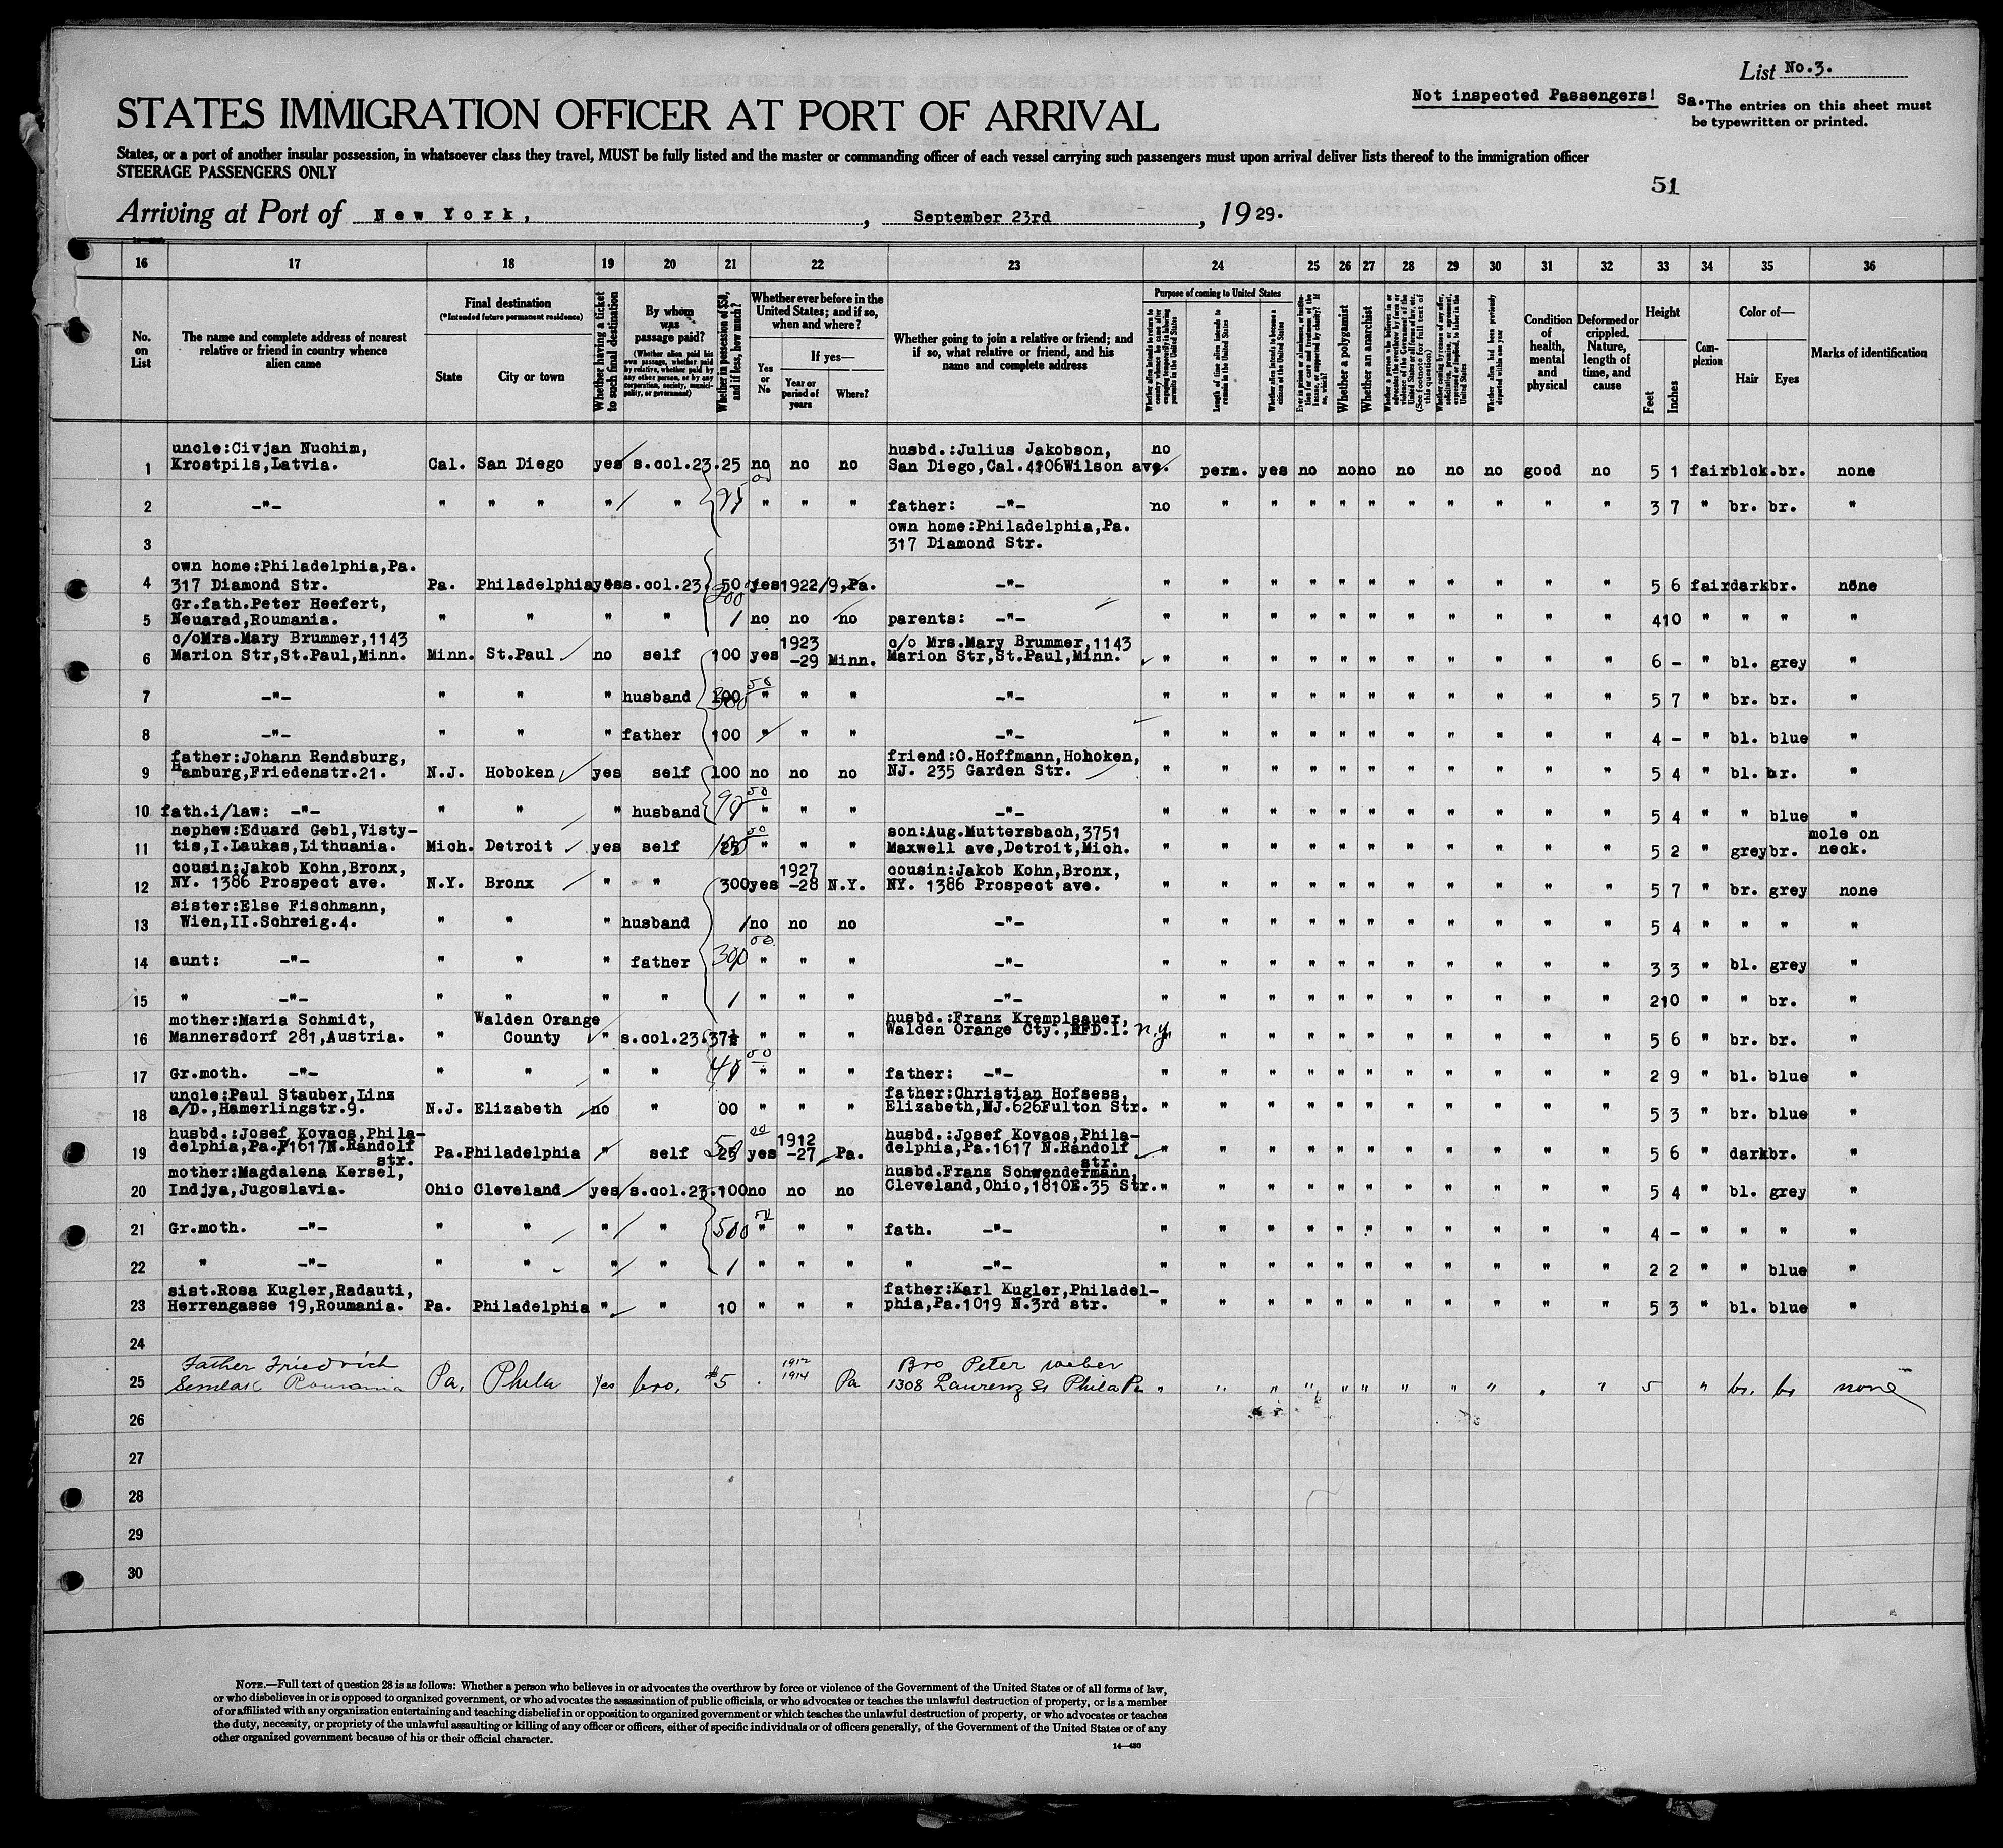 List No.3.
Not inspected Passengers!
Sa. The entries on this sheet must
be typewritten or printed.
STATES IMMIGRATION OFFICER AT PORT OF ARRIVAL
States, or a port of another insular possession, in whatsoever class they travel, MUST be fully listed and the master or commanding officer of each vessel carrying such passengers must upon arrival deliver lists thereof to the immigration officer
STEERAGE PASSENGERS ONLY
51
Arriving at Port of New York, , September 23rd , 1929.
16 17 18 19 20 21 22 23 24 25 26 27 28 29 30 31 32 33 34 35 36
No. on List
The name and complete address of nearest relative or friend in country whence alien came
Final destination
(*Intended future permanent residence)
State
City or town
Whether having a ticket to such final destination
By whom was passage paid?
(Whether alien paid his own passage, whether paid by relative, whether paid by any other person, or by any corporation, society, municipality, or government)
Whether in possession of $50, and if less, how much?
Whether ever before in the United States; and if so, when and where?
Yes or No
If yes—
Year or period of years
Where?
Whether going to join a relative or friend; and if so, what relative or friend, and his name and complete address
Purpose of coming to United States
Length of time alien intends to remain in the United States
Whether alien intends to become a citizen of the United States
Whether a polygamist
Whether an anarchist
Whether alien had been previously deported within one year
Condition of health, mental and physical
Deformed or crippled. Nature, length of time, and cause
Height
Feet
Inches
Complexion
Color of—
Hair
Eyes
Marks of identification
uncle:Civjan Nuchim, husbd.:Julius Jakobson, no
1 Krostpils,Latvia. Cal. San Diego yes s.col.23.25 no no no San Diego,Cal.4106Wilson ave. perm. yes no no no no no no good no 5 1 fair blck. br. none
2 -"- " " " " " " " " father: -"- no " " " " " " " " " " 3 7 " br. br. "
own home:Philadelphia,Pa.
3 317 Diamond Str.
own home:Philadelphia,Pa.
4 317 Diamond Str. Pa. Philadelphia yes s.col.23. 50 yes 1922/9,Pa. -"- " " " " " " " " " " " 5 6 fair dark br. none
Gr.fath.Peter Heefert,
5 Neuarad,Roumania. " " " " 1 no no no parents: -"- " " " " " " " " " " " 4 10 " " " "
c/oMrs.Mary Brummer,1143 1923 c/o Mrs.Mary Brummer,1143
6 Marion Str,St.Paul,Minn. Minn. St.Paul no self 100 yes -29 Minn. Marion Str,St.Paul,Minn. " " " " " " " " " " " 6 - " bl. grey "
7 -"- " " " husband 100 " " " -"- " " " " " " " " " " " 5 7 " br. br. "
8 -"- " " " father 100 " " " -"- " " " " " " " " " " " 4 - " bl. blue "
father:Johann Rendsburg, friend:O.Hoffmann,Hoboken,
9 Hamburg,Friedenstr.21. N.J. Hoboken yes self 100 no no no NJ. 235 Garden Str. " " " " " " " " " " " 5 4 " bl. br. "
10 fath.i/law: -"- " " " husband 90 " " " -"- " " " " " " " " " " " 5 4 " " blue "
nephew:Eduard Gebl,Visty- son:Aug.Muttersbach,3751 mole on
11 tis,I.Laukas,Lithuania. Mich. Detroit yes self 25 " " " Maxwell ave,Detroit,Mich. " " " " " " " " " " " 5 2 " grey br. neck.
cousin:Jakob Kohn,Bronx, 1927 cousin:Jakob Kohn,Bronx,
12 NY. 1386 Prospect ave. N.Y. Bronx " " 300 yes -28 N.Y. NY. 1386 Prospect ave. " " " " " " " " " " " 5 7 " br. grey none
sister:Else Fischmann,
13 Wien,II.Schreig.4. " " " husband 1 no no no -"- " " " " " " " " " " " 5 4 " " " "
14 aunt: -"- " " " father 300 " " " -"- " " " " " " " " " " " 3 3 " bl. grey "
15 " -"- " " " " 1 " " " -"- " " " " " " " " " " " 2 10 " " br. "
mother:Maria Schmidt, Walden Orange husbd.:Franz Kremplsauer,
16 Mannersdorf 281,Austria. " County " s.col.23.37½ " " " Walden Orange Cty.,RFD.1. n.y. " " " " " " " " " " " 5 6 " br. br. "
17 Gr.moth. -"- " " " " " " " father: -"- " " " " " " " " " " " 2 9 " bl. blue "
uncle:Paul Stauber,Linz father:Christian Hofsess,
18 a/D.,Hamerlingstr.9. N.J. Elizabeth no " 00 " " " Elizabeth,NJ.626Fulton Str. " " " " " " " " " " " 5 3 " br. blue "
husbd.:Josef Kovacs,Phila- 1912 husbd.:Josef Kovacs,Phila-
19 delphia,Pa.1617N.Randolf str. Pa. Philadelphia " self 25 yes -27 Pa. delphia,Pa.1617 N.Randolf str. " " " " " " " " " " " 5 6 dark br. "
mother:Magdalena Kersel, husbd.Franz Schwendermann,
20 Indjya,Jugoslavia. Ohio Cleveland yes s.col.23.100 no no no Cleveland,Ohio,1810E.35 Str. " " " " " " " " " " " 5 4 " bl. grey "
21 Gr.moth. -"- " " " " 500 " " " fath. -"- " " " " " " " " " " " 4 - " " " "
22 " -"- " " " " 1 " " " " -"- " " " " " " " " " " " 2 2 " " blue "
sist.Rosa Kugler,Radauti, father:Karl Kugler,Philadel-
23 Herrengasse 19,Roumania. Pa. Philadelphia " " 10 " " " phia,Pa.1019 N.3rd str. " " " " " " " " " " " 5 3 " bl. blue "
24
Father Friedrich 1912 Bro Peter Weber
25 Semlak Roumania Pa. Phila Yes bro. $5 1914 Pa 1308 Laurenz St Phila Pa " " " " " " " " " " " 5 " br. br none
26
27
28
29
30
NOTE.—Full text of question 28 is as follows: Whether a person who believes in or advocates the overthrow by force or violence of the Government of the United States or of all forms of law,
or who disbelieves in or is opposed to organized government, or who advocates the assassination of public officials, or who advocates or teaches the unlawful destruction of property, or is a member
of or affiliated with any organization entertaining and teaching disbelief in or opposition to organized government or which teaches the unlawful destruction of property, or who advocates or teaches
the duty, necessity, or propriety of the unlawful assaulting or killing of any officer or officers, either of specific individuals or of officers generally, of the Government of the United States or of any
other organized government because of his or their official character.
14—430